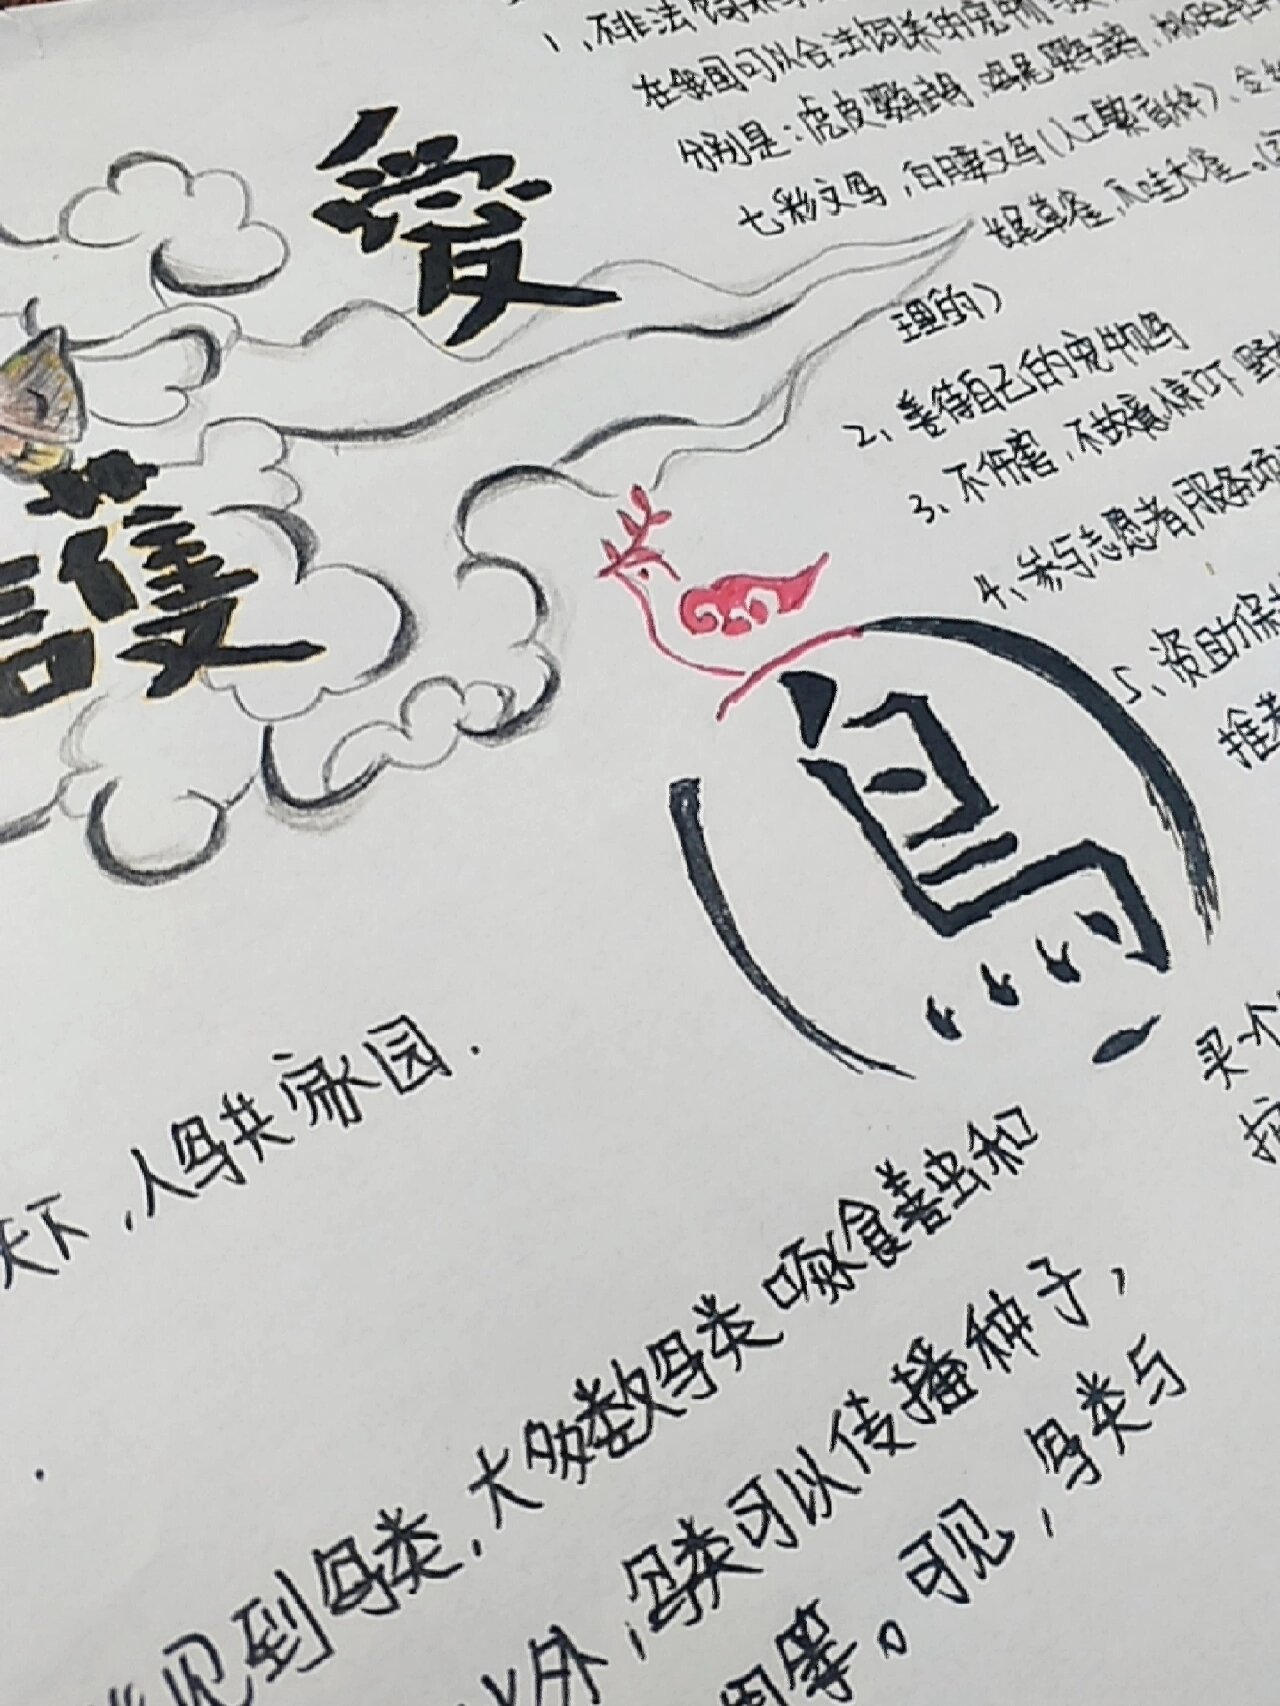 愛
護
鳥
1、不非法饲养
在我国可以合法饲养的宠物
分别是：虎皮鹦鹉，鸡尾鹦鹉，
七彩文鸟，白腰文鸟（人工繁育种）、
长尾草雀，爪哇禾雀。
理的）
2、善待自己的宠物鸟
3、不伤害，不故意惊吓野
4、参与志愿者服务项
5、资助保
推
买一个
天下，人鸟共家园．
见到鸟类，大多数鸟类啄食害虫和
外，鸟类可以传播种子，
等。可见，鸟类与